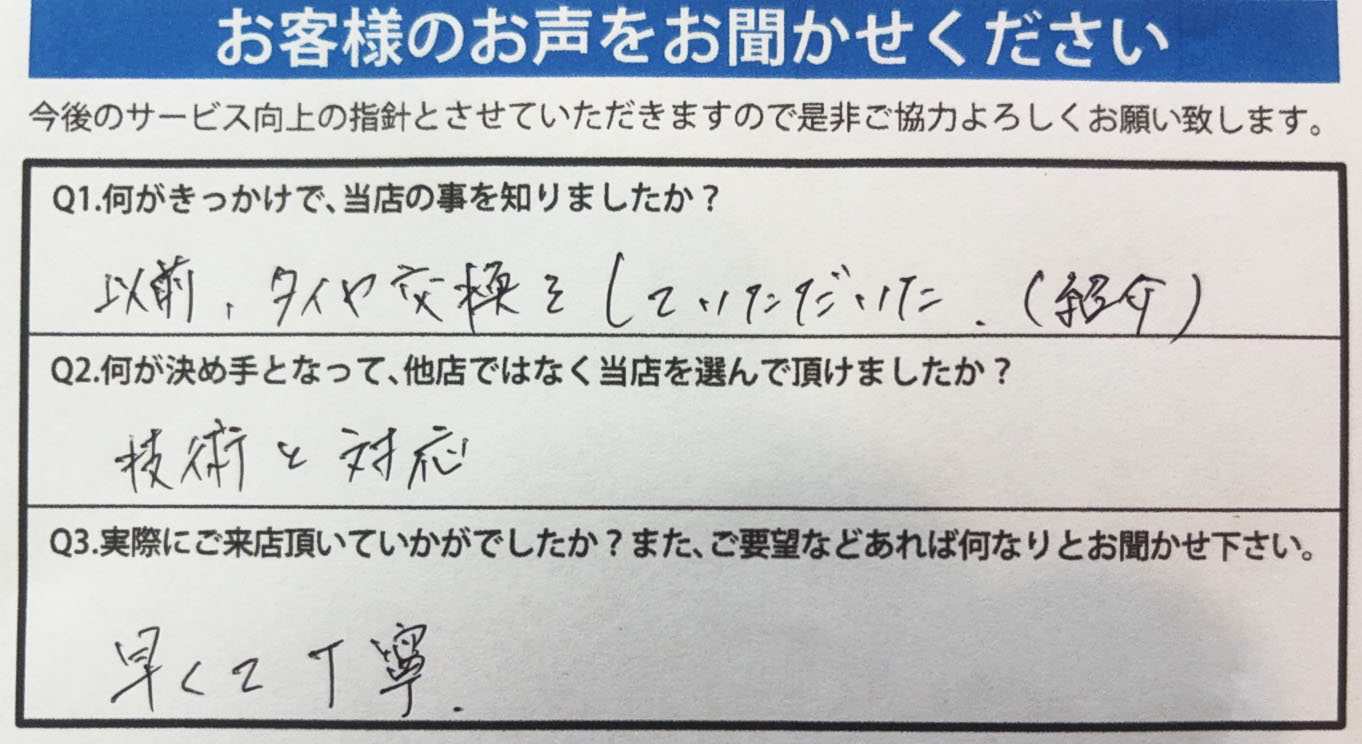 お客様のお声をお聞かせください
今後のサービス向上の指針とさせていただきますので是非ご協力よろしくお願い致します。
Q1.何がきっかけで、当店の事を知りましたか？
以前、タイヤ交換をしていただいた.（紹介）
Q2.何が決め手となって、他店ではなく当店を選んで頂けましたか？
技術と対応
Q3.実際にご来店頂いていかがでしたか？また、ご要望などあれば何なりとお聞かせ下さい。
早くて丁寧.